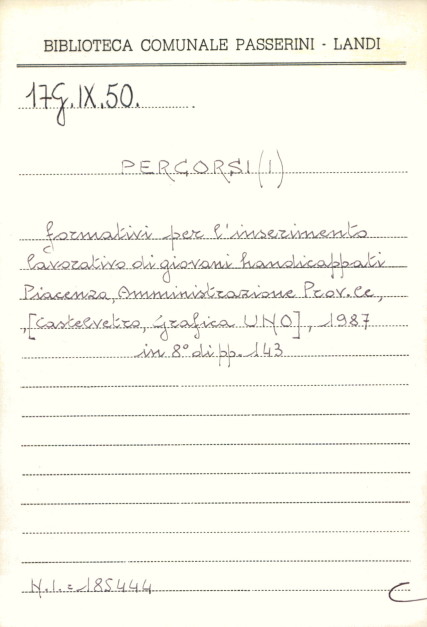 BIBLIOTECA COMUNALE PASSERINI - LANDI
17G.IX.50.
PERCORSI (I)
formativi per l'inserimento
lavorativo di giovani handicappati
Piacenza, Amministrazione Prov.le,
,[Castelvetro, Grafica UNO], 1987
in 8° di pp. 143
N.I.= 185444
C